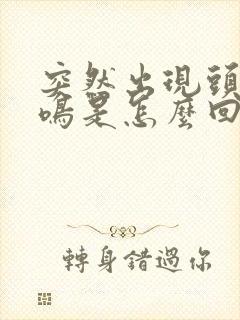 突然出現頭
鳴是怎麼回
轉身錯過你